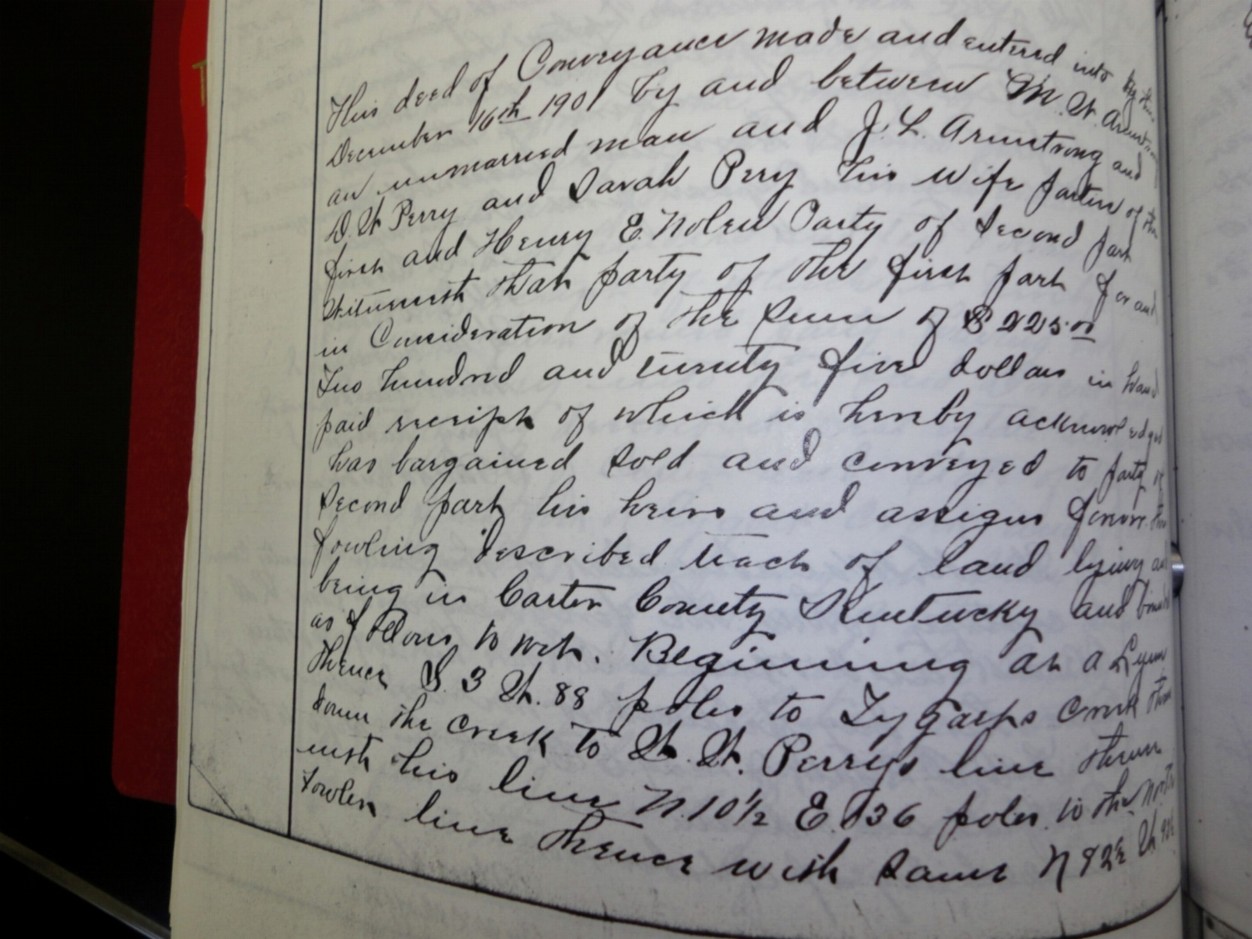 This deed of Conveyance made and entered into
December 16th 1901 by and between M. W. Armstrong
an unmarried man and J. L. Armstrong and
D. W. Perry and Sarah Perry his wife parties of the
first and Henry E. Nolen Party of Second part
Witnesseth that party of the first part for and
in Consideration of the sum of $225.00
Two hundred and twenty five dollars in hand
paid receipt of which is hereby acknowledged
has bargained sold and conveyed to party of
second part his heirs and assigns forever the
fowling described track of land lying and
being in Carter County Kentucky and bounded
as follows to wit. Beginning at a Lynn
thence S. 3 W. 88 poles to Tygarts creek thence
down the creek to W. W. Perrys line thence
with his line N. 10½ E. 136 poles to the North
Fowler line thence with same N 82 W